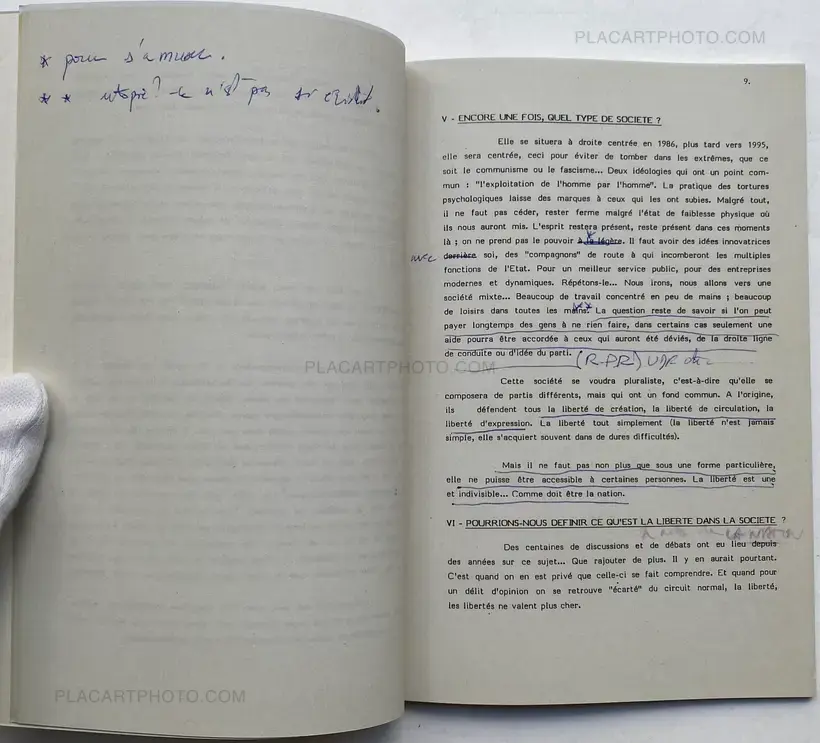 PLACARTPHOTO.COM
* pour s'amuser.
* * utopie? ce n'est pas si
9.
V - ENCORE UNE FOIS, QUEL TYPE DE SOCIETE ?
Elle se situera à droite centrée en 1986, plus tard vers 1995,
elle sera centrée, ceci pour éviter de tomber dans les extrêmes, que ce
soit le communisme ou le fascisme... Deux idéologies qui ont un point com-
mun : "l'exploitation de l'homme par l'homme". La pratique des tortures
psychologiques laisse des marques à ceux qui les ont subies. Malgré tout,
il ne faut pas céder, rester ferme malgré l'état de faiblesse physique où
ils nous auront mis. L'esprit restera présent, reste présent dans ces moments
*
là ; on ne prend pas le pouvoir à la légère. Il faut avoir des idées innovatrices
avec derrière soi, des "compagnons" de route à qui incomberont les multiples
fonctions de l'Etat. Pour un meilleur service public, pour des entreprises
modernes et dynamiques. Répétons-le... Nous irons, nous allons vers une
société mixte... Beaucoup de travail concentré en peu de mains ; beaucoup
de loisirs dans toutes les mains. ** La question reste de savoir si l'on peut
payer longtemps des gens à ne rien faire, dans certains cas seulement une
aide pourra être accordée à ceux qui auront été déviés, de la droite ligne
de conduite ou d'idée du parti. (R.P.R) UDF
PLACARTPHOTO.COM
Cette société se voudra pluraliste, c'est-à-dire qu'elle se
composera de partis différents, mais qui ont un fond commun. A l'origine,
ils défendent tous la liberté de création, la liberté de circulation, la
liberté d'expression. La liberté tout simplement (la liberté n'est jamais
simple, elle s'acquiert souvent dans de dures difficultés).
Mais il ne faut pas non plus que sous une forme particulière,
elle ne puisse être accessible à certaines personnes. La liberté est une
et indivisible... Comme doit être la nation.
VI - POURRIONS-NOUS DEFINIR CE QU'EST LA LIBERTE DANS LA SOCIETE ?
LA NATION
Des centaines de discussions et de débats ont eu lieu depuis
des années sur ce sujet... Que rajouter de plus. Il y en aurait pourtant.
C'est quand on en est privé que celle-ci se fait comprendre. Et quand pour
un délit d'opinion on se retrouve "écarté" du circuit normal, la liberté,
les libertés ne valent plus cher.
PLACARTPHOTO.COM